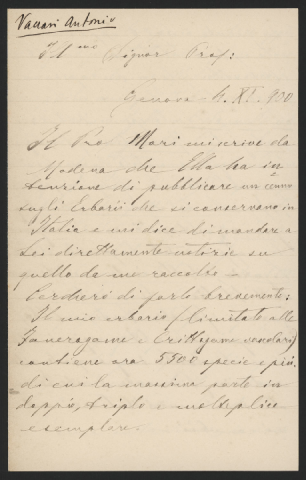 Vaccari Antonio
Ill.mo Signor Prof:
Genova - 4. XI. 900
Il Pro Mori mi scrive da
Modena che Ella ha in
tenzione di pubblicare un cenno
sugli Erbarii che si conservano in
Italia e mi dice di mandare a
Lei direttamente notizie su
quello da me raccolto -
Cercherò di farlo brevemente:
Il mio erbario (limitato alle
Fanerogame e Crittogame vascolari)
contiene ora 5500 specie e più,
di cui la massima parte in
doppio, triplo e molteplice
esemplare.